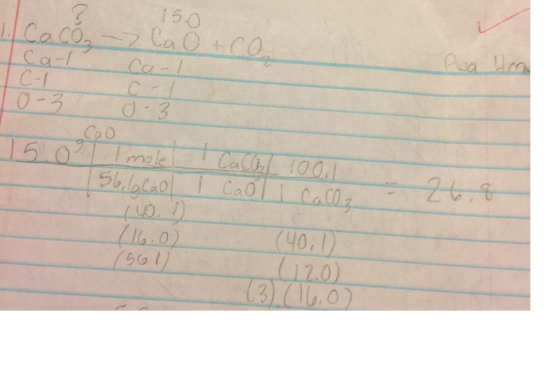 ? 15.0
1. CaCO₃ → CaO + CO₂
Ca-1 Ca-1
C-1 C-1
O-3 O-3
15.0g CaO | 1 mole | 1 CaCO₃ | 100.1
56.1g CaO | 1 CaO | 1 CaCO₃ = 26.8
(40.1)
(16.0) (40.1)
(56.1) (12.0)
(3)(16.0)